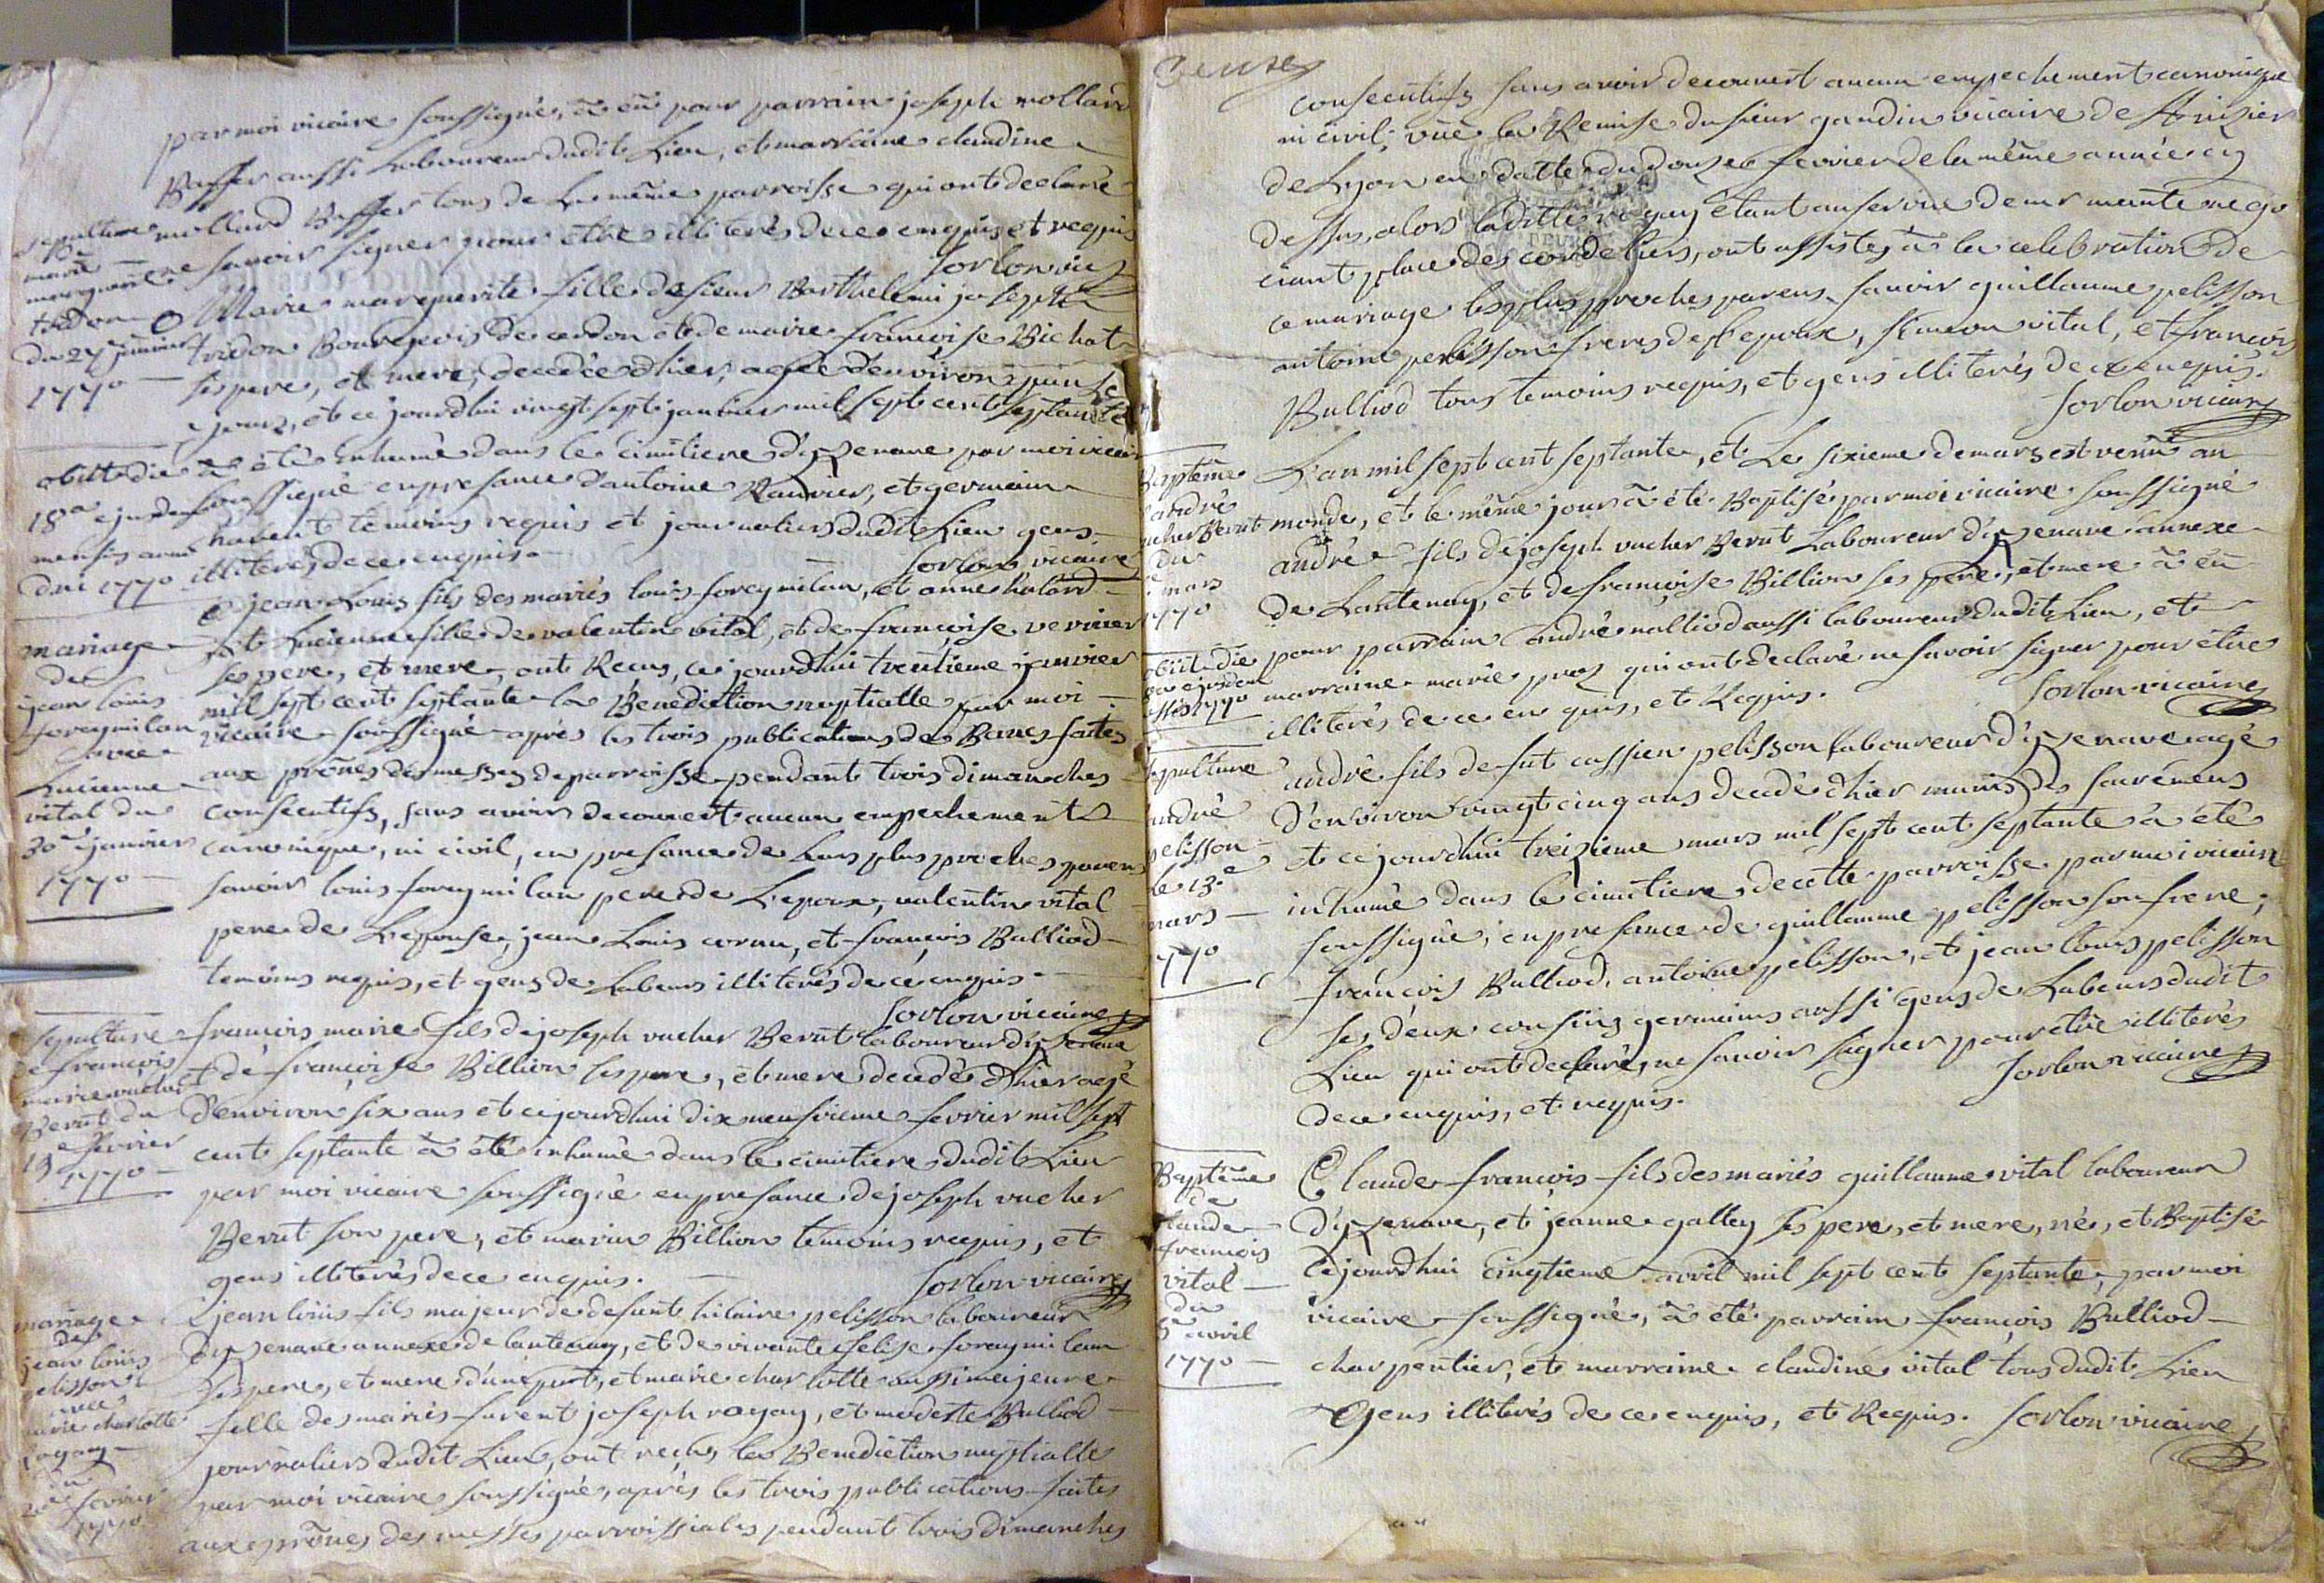 par moi vicaire soussigné, à eû pour parrain joseph mollard
Baffer aussi Laboureur dudit Lieu, et marraine claudine
mollard Baffer tous de La même parroisse qui ont declaré
ne savoir signer pour etre illiterés de ce enquis et requis
sorlon vic
sepulture
marie
marguerite
tridon
du 27e janvier
1770
Marie marguerite fille de sieur Barthelemi joseph
tridon Bourgeois de cerdon et de marie francoise Bichat
ses pere, et mere, decedée d'hier, agée d'environ
jours, et ce jourdhui vingt sept janvier mil sept cent septante
à été inhumé dans le cimitiere d'izenave par moi vicaire
soussigné en presance d'antoine Ravier, et germain
temoins requis et journaliers dudit Lieu gens
illiterés de ce enquis.
sorlon vicaire
obiit die
18a ejusdem
mensis anni
dni 1770
mariage
de
jean louis
forey milan
avec
Lucienne
vital du
30e janvier
1770
jean Louis fils des mariés louis forey milan, et anne
et Lucienne fille de valentin vital, et de francoise
ses pere, et mere, ont Recus, ce jourdhui trentieme janvier
mil sept cent septante la Benediction nuptialle par moi
vicaire soussigné après les trois publications de Bancs faites
aux prônes des messes de parroisse pendant trois dimanches
consecutifs, sans avoir decouvert aucun empechement
canonique, ni civil, en presance de Leurs plus proches parens
savoir louis forey milan pere de L'epoux, valentin vital
pere de L'epouse, jean Louis cornu, et françois Bulliod
temoins requis, et gens de Labeur illiterés de ce enquis
sorlon vicaire
sepulture
de francois
marie vucher
Berut du
19e fevrier
1770
francois marie fils de joseph vucher Berut laboureur d'izenave
et de françoise Billion ses pere, et mere decedé d'hier agé
d'environ six ans et ce jourdhui dix neufvieme fevrier mil sept
cent septante à été inhumé dans le cimitiere dudit Lieu
par moi vicaire soussigné en presance de joseph vucher
Berut son pere, et marin Billion temoins requis, et
gens illiterés de ce enquis.
sorlon vicaire
mariage
de
jean louis
pelisson
avec
marie charlotte
rogay
du
fevrier
1770
jean louis fils majeur de defunt hilaire pelisson laboureur
d'izenave annexe de lantenay, et de vivante felise forey milan
ses pere, et mere d'une part, et marie charlotte aussi majeure
fille des mariés furent joseph rogay, et modeste Bulliod
journaliers dudit Lieu, ont reçus la Benediction nuptialle
par moi vicaire soussigné, après les trois publications faites
aux prônes des messes parroissiales pendant trois dimanches
consecutifs sans avoir decouvert aucun empechement canonique
ni civil, vüe la Remise du sieur gaudin vicaire de st nizier
de Lyon en datte du douze fevrier de la même année cy
dessus, alors laditte rogay étant au service de mr mante nego
ciant place des cordeliers, ont assistés à la celebration de
ce mariage les plus proches parens savoir guillaume pelisson
antoine pelisson freres de L'epoux, simeon vital, et francois
Bulliod tous temoins requis, et gens illiterés de ce enquis.
sorlon vicaire
Baptême
d'andré
vucher Berut
du
mars
1770
L'an mil sept cent septante, et Le sixieme de mars est venû au
monde, et le même jour à été Baptisé par moi vicaire soussigné
andré fils de joseph vucher Berut Laboureur d'izenave annexe
de Lantenay, et de françoise Billion ses pere, et mere à eû
pour parrain andré nalliod aussi laboureur dudit Lieu, et
marraine marie pros qui ont declaré ne savoir signer pour être
illiterés de ce enquis, et Requis.
sorlon vicaire
obiit die
ejusdem
mensis 1770
sepulture
andré
pelisson
le 13e
mars
1770
andré fils de fut cassien pelisson laboureur d'izenave agé
d'environ vingt cinq ans decedé d'hier munis des sacrémens
et ce jourdhui treizieme mars mil sept cent septante à été
inhumé dans le cimitiere de cette parroisse par moi vicaire
soussigné, en presance de guillaume pelisson son frere,
françois Bulliod, antoine pelisson, et jean louis pelisson
ses deux cousins germains aussi gens de Labeur dudit
Lieu qui ont declaré, ne savoir signer pour etre illiterés
de ce enquis, et requis.
sorlon vicaire
Baptême
de
claude
françois
vital
du
5e avril
1770
Claude françois fils des mariés guillaume vital laboureur
d'izenave, et jeanne galley ses pere, et mere, né, et Baptisé
ce jourdhui cinqtieme avril mil sept cent septante, par moi
vicaire soussigné, à été parrain françois Bulliod
charpentier, et marraine claudine vital tous dudit Lieu
Gens illiterés de ce enquis, et Requis. sorlon vicaire